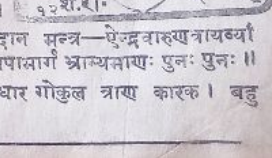 १२श.रा.
दान मन्त्र—ऐन्द्रवारुणवायव्यां
पामार्गं भ्राम्यमाणः पुनः पुनः ॥
धार गोकुल त्राण कारक। बहु